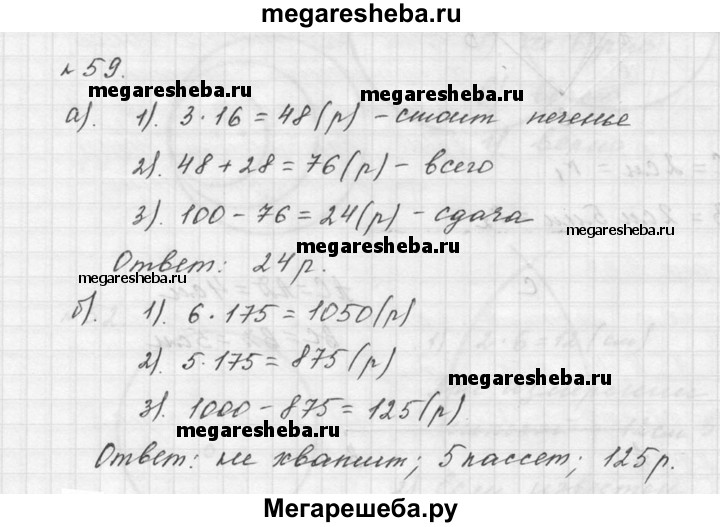 megaresheba.ru
№ 59.
megaresheba.ru megaresheba.ru
а). 1). 3·16=48(р) - стоит печенье
2). 48+28=76(р) - всего
3). 100-76=24(р) - сдача
megaresheba.ru
megaresheba.ru
Ответ: 24р.
megaresheba.ru
б). 1). 6·175=1050(р)
2). 5·175=875(р)
megaresheba.ru
3). 1000-875=125(р)
megaresheba.ru
Ответ: не хватит; 5 кассет; 125р.
Мегарешеба.ру